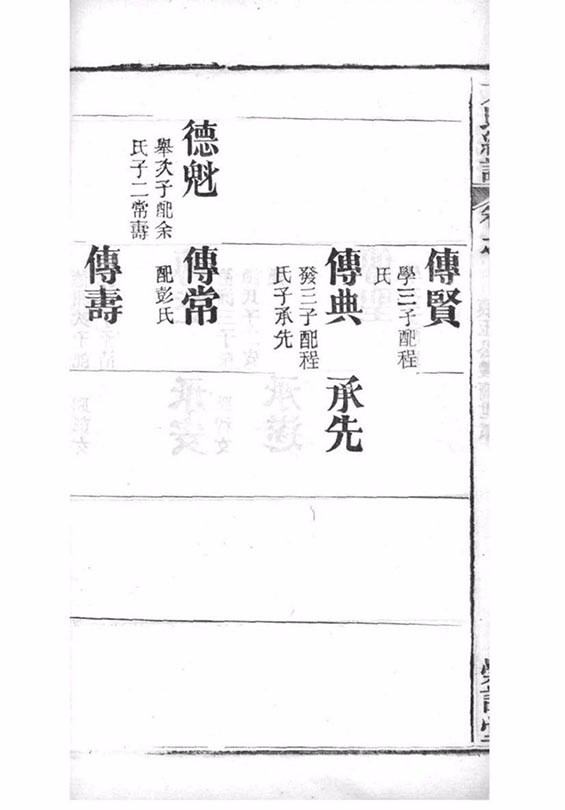 傳賢
學三子配程
氏
傳典
發三子配程
氏子承先
承先
德魁
舉次子配余
氏子二常壽
傳常
配彭氏
傳壽